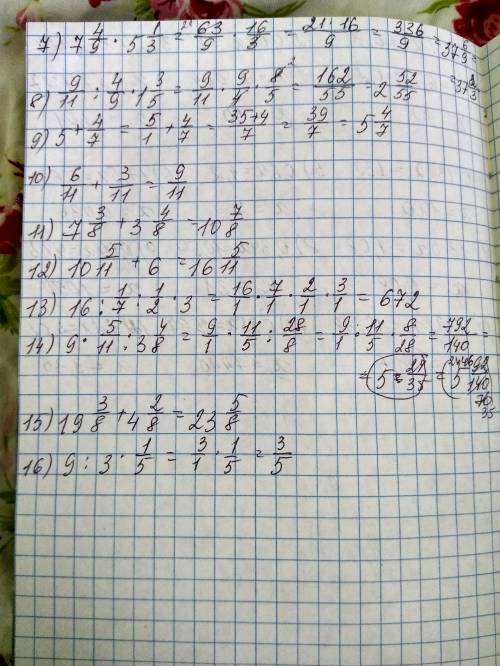 7) 7 4/9 · 5 1/3 = 63/9 · 16/3 = 21·16/9 = 336/9 = 37 6/3
8) 9/11 : 4/9 · 1 3/5 = 9/11 · 9/4 · 8/5 = 162/55 = 2 52/55
9) 5 + 4/7 = 5/1 + 4/7 = 35+4/7 = 39/7 = 5 4/7
10) 6/11 + 3/11 = 9/11
11) 7 3/8 + 3 4/8 = 10 7/8
12) 10 5/11 + 6 = 16 5/11
13) 16 : 1/7 : 1/2 · 3 = 16/1 · 7/1 · 2/1 · 3/1 = 672
14) 9 · 5/11 : 3 4/8 = 9/1 · 11/5 : 28/8 = 9/1 · 11/5 · 8/28 = 792/140 =
= 5 23/35 = 5 92/140
70
35
15) 19 3/8 + 4 2/8 = 23 5/8
16) 9 : 3 · 1/5 = 3/1 · 1/5 = 3/5